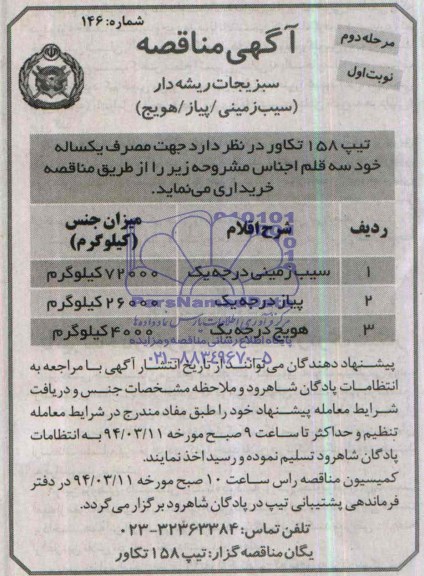 شماره: ۱۴۶
آگهی مناقصه
مرحله دوم
نوبت اول
سبزیجات ریشه دار
(سیب زمینی/پیاز/هویج)
تیپ ۱۵۸ تکاور در نظر دارد جهت مصرف یکساله
خود سه قلم اجناس مشروحه زیر را از طریق مناقصه
خریداری می‌نماید.
ردیف شرح اقلام میزان جنس (کیلوگرم)
۱ سیب زمینی درجه یک ۷۲۰۰۰ کیلوگرم
۲ پیاز درجه یک ۲۶۰۰۰ کیلوگرم
۳ هویج درجه یک ۴۰۰۰ کیلوگرم
پایگاه اطلاع رسانی مناقصه و مزایده
۰۲۱-۸۸۳۴۹۶۷۰-۵
پیشنهاد دهندگان می‌توانند از تاریخ انتشار آگهی با مراجعه به
انتظامات پادگان شاهرود و ملاحظه مشخصات جنس و دریافت
شرایط معامله پیشنهاد خود را طبق مفاد مندرج در شرایط معامله
تنظیم و حداکثر تا ساعت ۹ صبح مورخه ۹۴/۰۳/۱۱ به انتظامات
پادگان شاهرود تسلیم نموده و رسید اخذ نمایند.
کمیسیون مناقصه راس ساعت ۱۰ صبح مورخه ۹۴/۰۳/۱۱ در دفتر
فرماندهی پشتیبانی تیپ در پادگان شاهرود برگزار می‌گردد.
تلفن تماس: ۳۲۳۶۳۳۸۴-۰۲۳
یگان مناقصه گزار: تیپ ۱۵۸ تکاور